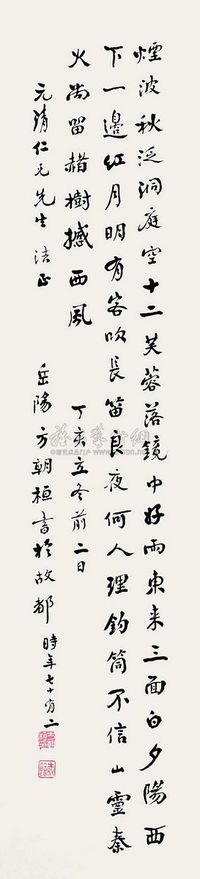 煙波秋泛洞庭空十二芙蓉落鏡中好雨東来三面白夕陽西
下一邊紅月明有客吹長笛良夜何人理釣筒不信山靈秦
火尚留赭樹撼西風
丁亥立冬前二日
元清仁兄先生法正
岳陽方朝桓書於故都時年七十有二